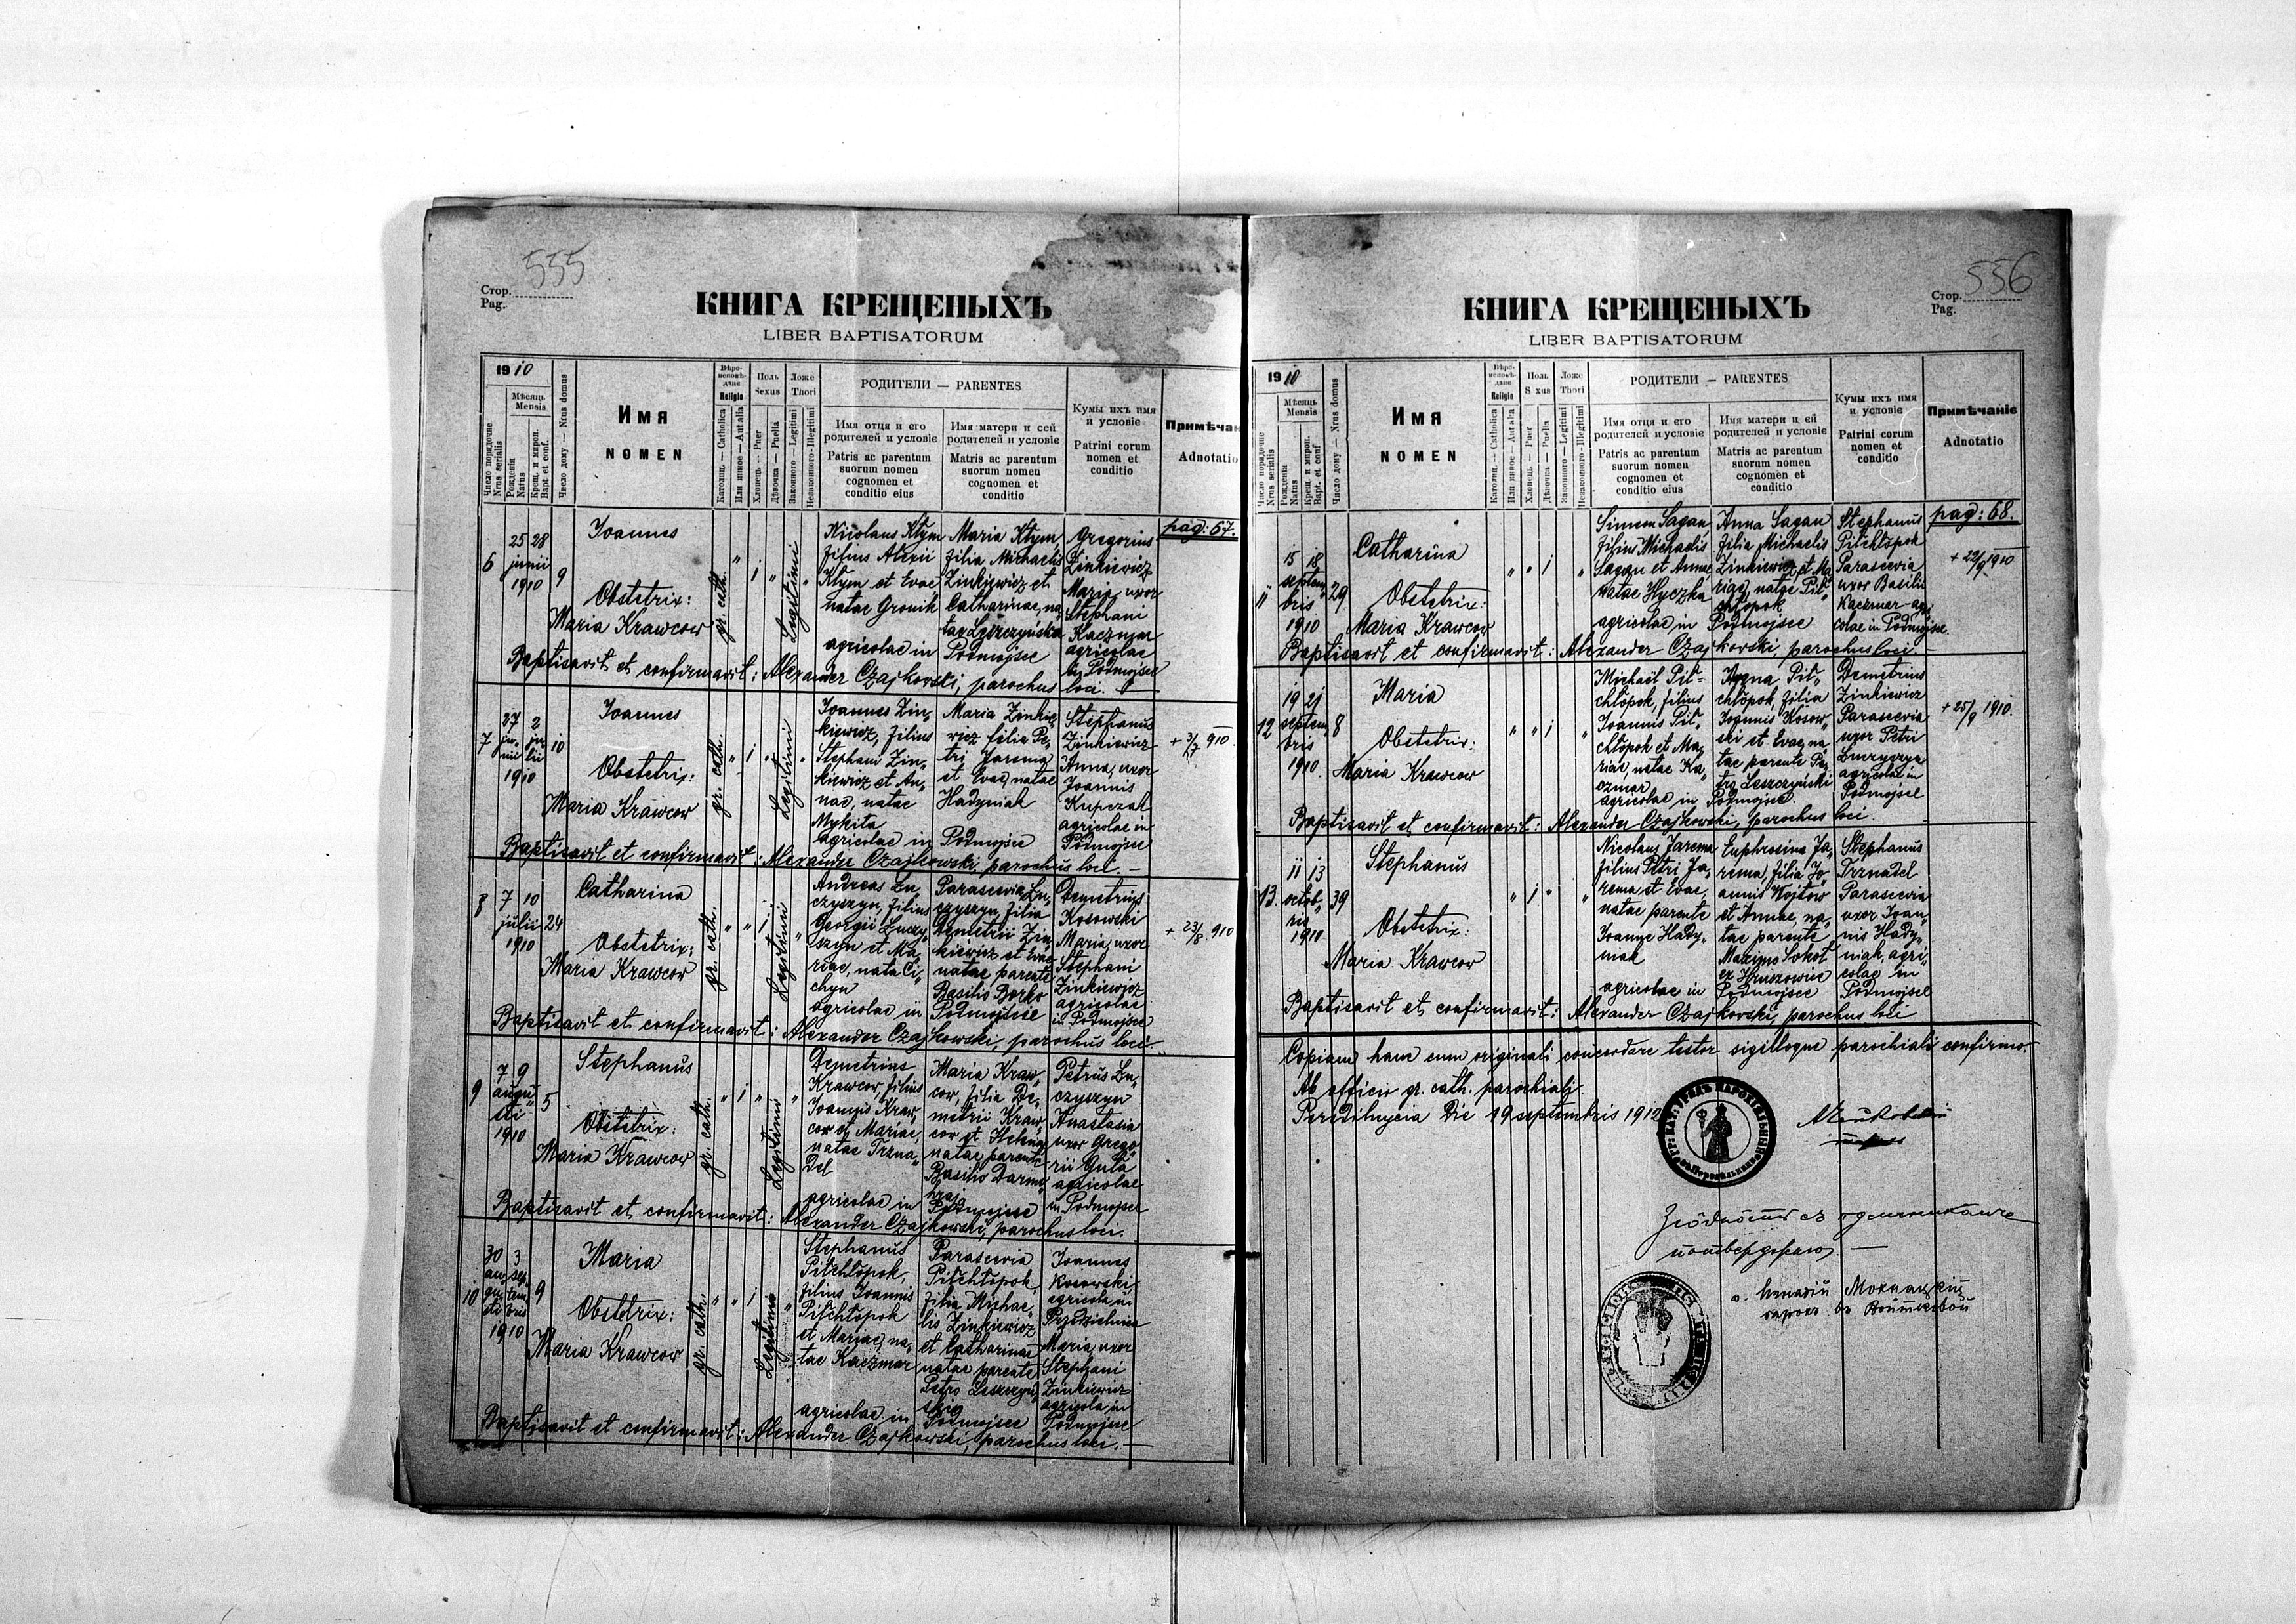 555
Стор.
Pag.
КНИГА КРЕЩЕНЫХЪ
LIBER BAPTISATORUM
1910
Мѣсяць
Mensis
Число порядочне
Nrus serialis
Рожденія
Natus
Крещ. и мvроп.
Bapt. et conf.
Число дому — Nrus domus
Имя
NOMEN
Вѣро-
исповѣ-
даніе
Religio
Католиц. — Catholica
Или инное — Aut alia
Полъ
Sexus
Хлопець — Puer
Дѣвочка — Puella
Ложе
Thori
Законного — Legitimi
Незаконного — Illegitimi
РОДИТЕЛИ — PARENTES
Имя отця и его
родителей и условіе
Patris ac parentum
suorum nomen
cognomen et
conditio eius
Имя матери и сей
родителей и условіе
Matris ac parentum
suorum nomen
cognomen et
conditio
Кумы ихъ имя
и условіе
Patrini eorum
nomen et
conditio
Примѣчан
Adnotatio
pag: 67.
6
25 28
junii
1910
9
Joannes
Obstetrix:
Maria Krawcow
gr. cath.
Legitimi
Nicolaus Klym
filius Alexii
Klym et Evae
natae Gronik
agricolae in
Maria Klym
filia Michaelis
Zinkiewicz et
Catharinae, na„
tae Leszczyńska
Podmojsce
Gregorius
Zinkiewicz
Maria, uxor
Stephani
Kaczmar
agricolae
in Podmojsce
Baptisavit et confirmavit: Alexander Czajkowski, parochus loci.
7
27 2
ju„ ju„
nii lii
1910
10
Joannes
Obstetrix:
Maria Krawcow
gr. cath.
Legitimi
Joannes Zin„
kiewicz, filius
Stephani Zin„
kiewicz et An„
nae, natae
Mykita
agricolae in
Maria Zinkie„
wicz filia Pe„
tri Jarema
et Evae, natae
Hadyniak
Podmojsce
Stephanus
Zinkiewicz
Anna, uxor
Joannis
Kupczak
agricolae in
Podmojsce
+ 3/7 910.
Baptisavit et confirmavit: Alexander Czajkowski, parochus loci. —
8
7 10
julii
1910
24
Catharina
Obstetrix:
Maria Krawcow
gr. cath.
Legitimi
Andreas Łu„
czyszyn, filius
Georgii Łuczy„
szyn et Ma„
riae, nata Ci„
chyn
agricolae in
Parascevia Łu„
czyszyn, filia
Demetrii Zin„
kiewicz et Evae
natae parente
Basilio Borko
Podmojsce
Demetrius
Kosowski
Maria, uxor
Stephani
Zinkiewicz
agricolae
in Podmojsce
+ 23/8 910
Baptisavit et confirmavit: Alexander Czajkowski, parochus loci.
9
7 9
augu„
sti
1910
5
Stephanus
Obstetrix:
Maria Krawcow
gr. cath.
Legitimi
Demetrius
Krawcow, filius
Joannis Kraw„
cow et Mariae,
natae Trzna„
del
agricolae in
Maria Kraw„
cow, filia De„
metrii Kraw„
cow et Helenae
natae parente
Podmojsce
Petrus Łu„
czyszyn
Anastasia
uxor Grego„
rii Guła
agricolae
in Podmojsce
Baptisavit et confirmavit: Alexander Czajkowski, parochus loci.
10
30 3
au„ sep„
gu„ tem„
sti bris
1910
9
Maria
Obstetrix:
Maria Krawcow
gr. cath.
Legitimi
Stephanus
Pitchłopok,
filius Joannis
Pitchłopok
et Mariae, na„
tae Kaczmar
agricolae in
Parascevia
Pitchłopok
filia Michae„
lis Zinkiewicz
et Catharinae
natae parente
Petro Leszczyń„
skio
Podmojsce
Joannes
Kosowski
agricola in
Maria, uxor
Stephani
Zinkiewicz
agricola in
Podmojsce
Baptisavit et confirmavit: Alexander Czajkowski, parochus loci. —
556
Стор.
Pag.
КНИГА КРЕЩЕНЫХЪ
LIBER BAPTISATORUM
1910
Мѣсяць
Mensis
Число порядочне
Nrus serialis
Рожденія
Natus
Крещ. и мvроп.
Bapt. et conf
Число дому — Nrus domus
Имя
NOMEN
Вѣро-
исповѣ-
даніе
Religio
Католиц. — Catholica
Или инное — Aut alia
Полъ
S xus
Хлопець — Puer
Дѣвочка — Puella
Ложе
Thori
Законного — Legitimi
Незаконного — Illegitimi
РОДИТЕЛИ — PARENTES
Имя отця и его
родителей и условіе
Patris ac parentum
suorum nomen
cognomen et
conditio eius
Имя матери и ей
родителей и условіе
Matris ac parentum
suorum nomen
cognomen et
conditio
Кумы ихъ имя
и условіе
Patrini eorum
nomen et
conditio
Примѣчаніе
Adnotatio
pag: 68.
11
15 18
septem„
bris
1910
29
Catharina
Obstetrix:
Maria Krawcow
Simeon Sagan
filius Michaelis
Sagan et Annae
natae Hyczka
agricolae in
Anna Sagan
filia Michaelis
Zinkiewicz et Ma„
riae, natae Pit„
chłopok
Podmojsce
Stephanus
Pitchłopok
Parascevia
uxor Basilii
Kaczmar agri„
colae in Podmojsce.
+ 22/9 1910
Baptisavit et confirmavit: Alexander Czajkowski, parochus loci —
12
19 21
septem„
bris
1910.
8
Maria
Obstetrix:
Maria Krawcow
Michaël Pit=
chłopok, filius
Joannis Pit„
chłopok et Ma„
riae, natae Ka„
czmar
agricolae in
Anna Pit„
chłopok, filia
Joannis Kosow„
ski et Evae, na„
tae parente Pe„
tro Leszczyński
Podmojsce.
Demetrius
Zinkiewicz
Parascevia
uxor Petri
Łuczyszyn
agricolae in
Podmojsce
+ 25/9 1910.
Baptisavit et confirmavit: Alexander Czajkowski, parochus loci.
13.
11 13
octob„
ris
1910
39
Stephanus
Obstetrix:
Maria Krawcow
Nicolaus Jarema
filius Petri Ja„
rema et Evae,
natae parente
Joanne Hady„
niak
agricolae in
Euphrosina Ja„
rema, filia Jo„
annis Wojtow
et Annae, na„
tae parente
Maximo Sokoł
ex Hruszowice
Podmojsce
Stephanus
Trznadel
Parascevia
uxor Joan„
nis Hady„
niak, agri„
colae in
Podmojsce
Baptisavit et confirmavit: Alexander Czajkowski, parochus loci
Copiam hanc cum originali concordare testor sigilloque parochiali confirmo.
Ab officio gr. cath. parochiali
die 19 septembris 1912
потверджаю. —